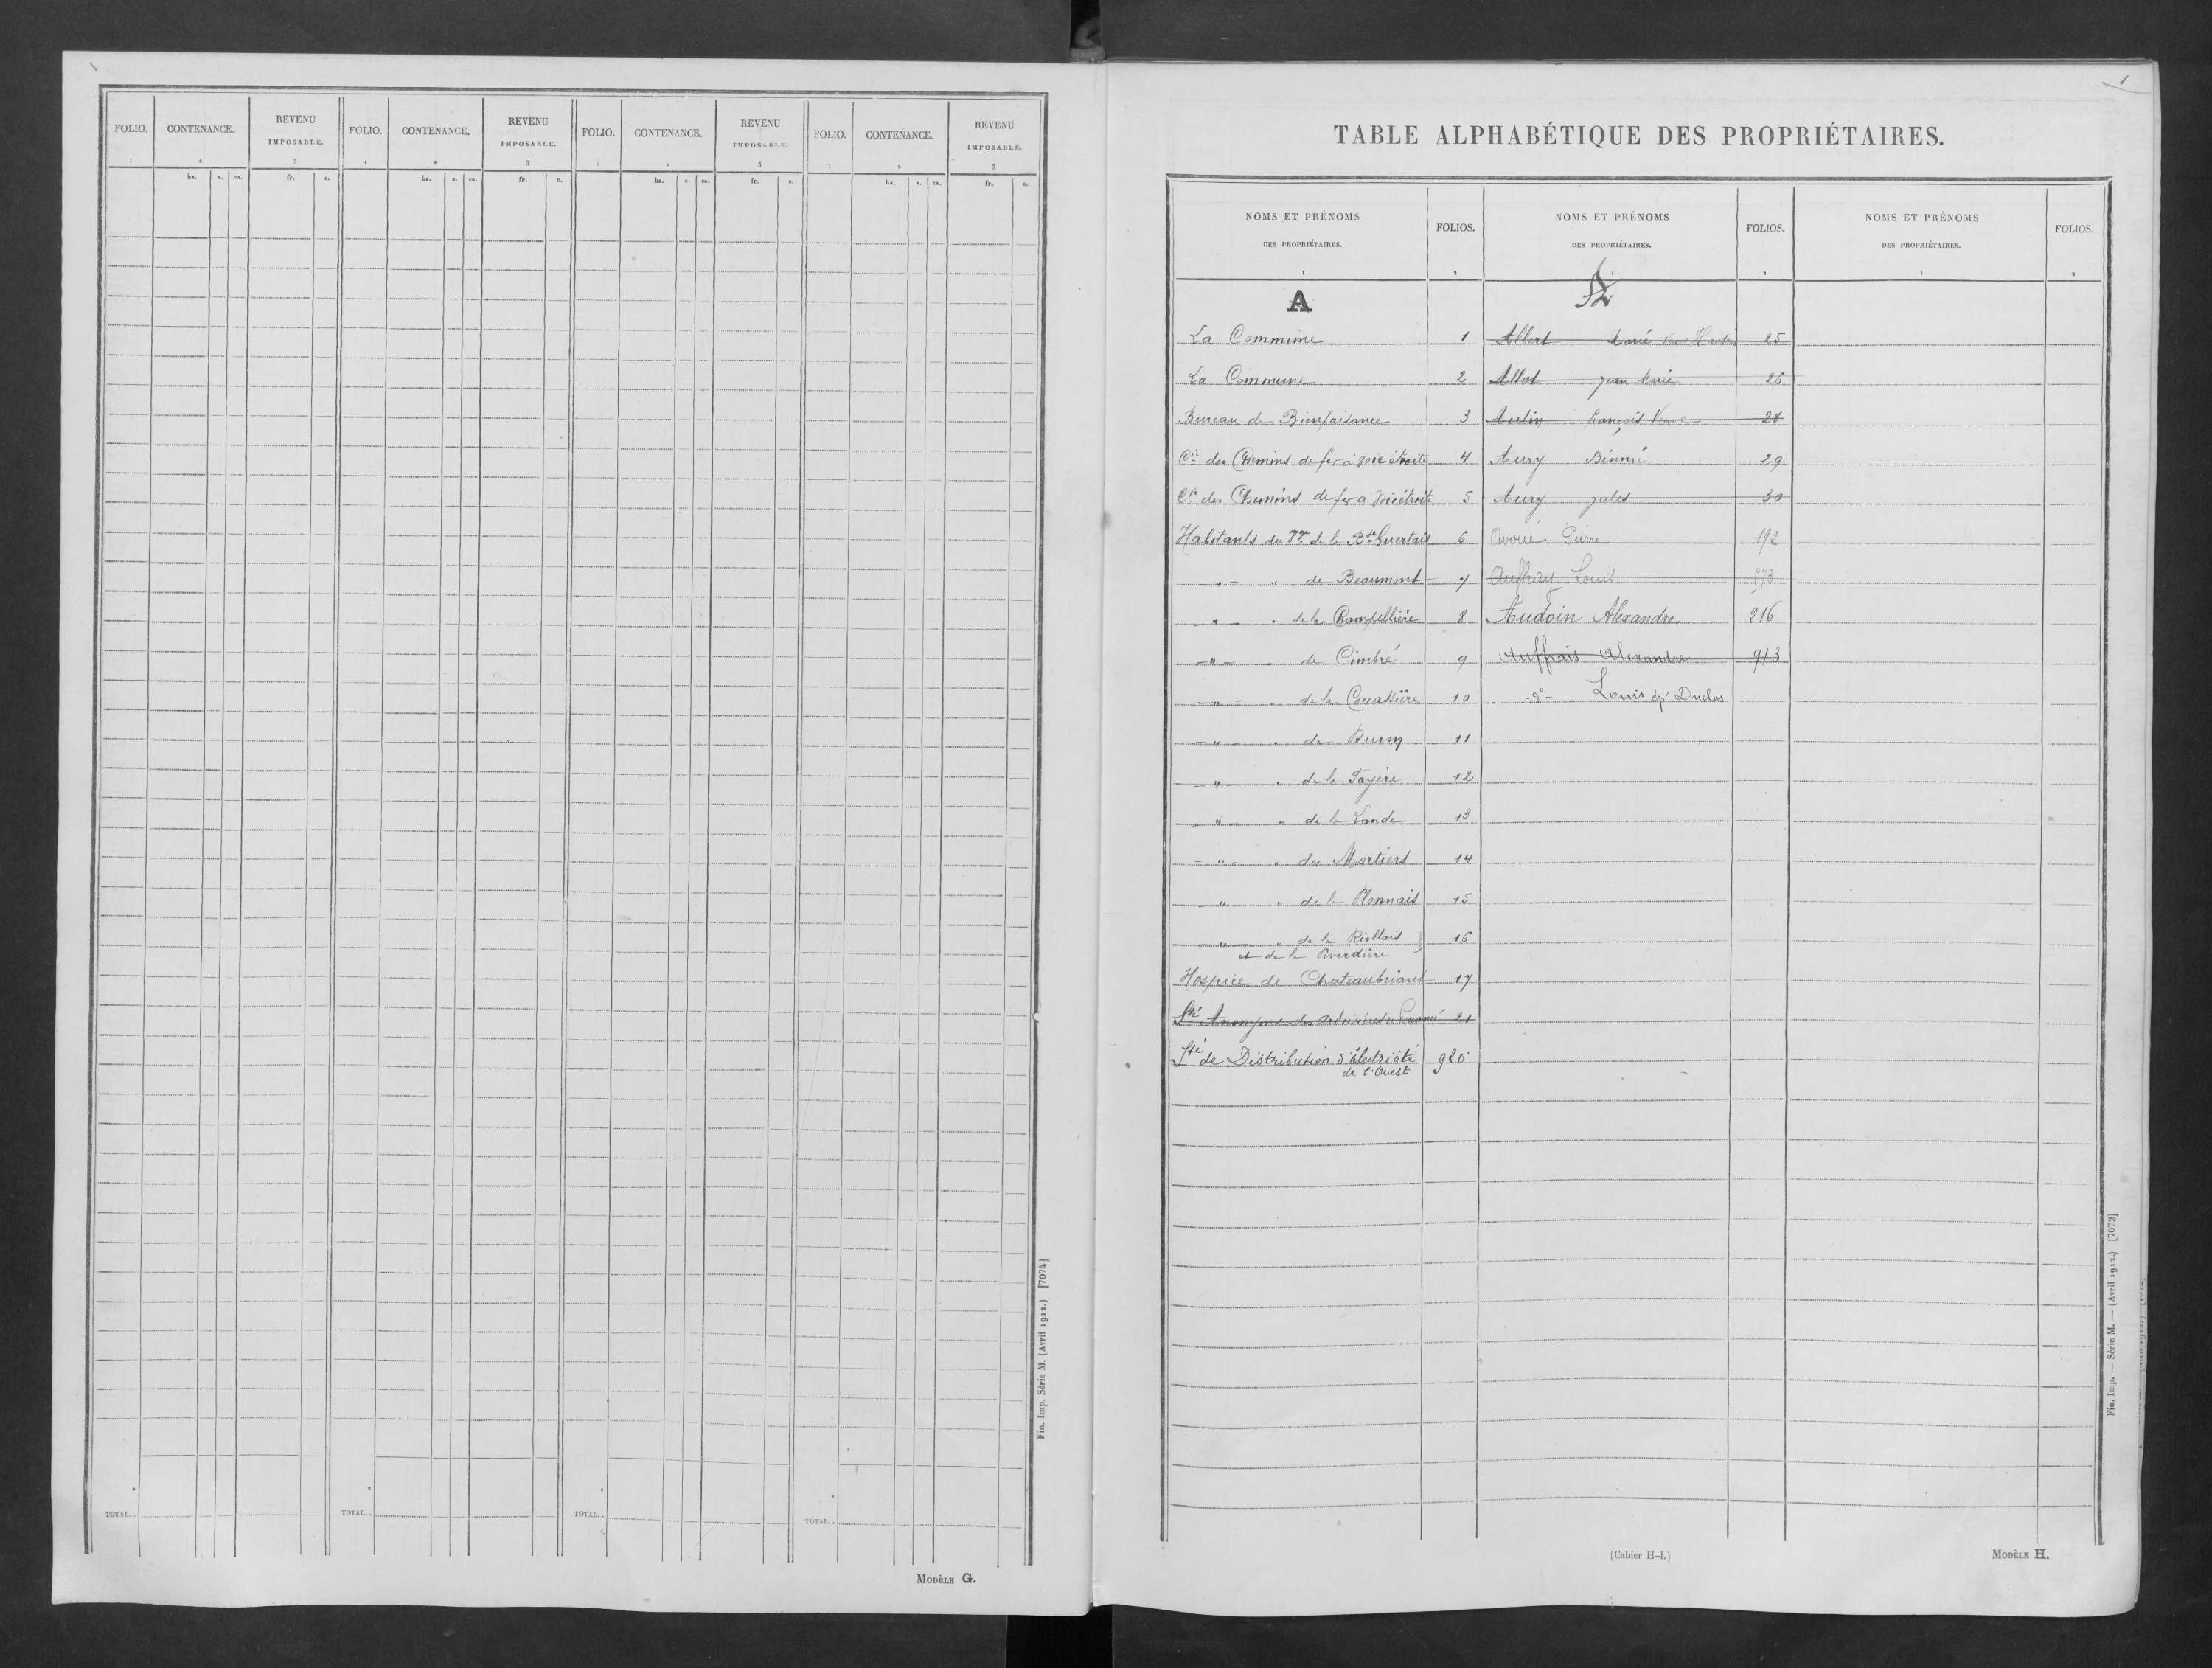 FOLIO. CONTENANCE. REVENU IMPOSABLE. FOLIO. CONTENANCE. REVENU IMPOSABLE. FOLIO. CONTENANCE. REVENU IMPOSABLE. FOLIO. CONTENANCE. REVENU IMPOSABLE.
1 2 3 1 2 3 1 2 3 1 2 3
ha. a. ca. fr. c. ha. a. ca. fr. c. ha. a. ca. fr. c. ha. a. ca. fr. c.
TOTAL.. TOTAL.. TOTAL.. TOTAL..
Fin. Imp. Série M. (Avril 1912.) [7074]
MODÈLE G.
1
TABLE ALPHABÉTIQUE DES PROPRIÉTAIRES.
NOMS ET PRÉNOMS DES PROPRIÉTAIRES. FOLIOS. NOMS ET PRÉNOMS DES PROPRIÉTAIRES. FOLIOS. NOMS ET PRÉNOMS DES PROPRIÉTAIRES. FOLIOS.
1 2 1 2 1 2
A
La Commune 1
La Commune 2
Bureau de Bienfaisance 3
Cie des Chemins de fer à voie étroite 4
Cie des Chemins de fer à voie étroite 5
Habitants du Vge de la Bsse Guertais 6
" " de Beaumont 7
" " de la Champellière 8
" " de Cimbré 9
" " de la Couassière 10
" " de Buron 11
" " de la Fayère 12
" " de la Lande 13
" " des Mortiers 14
" " de la Plonnais 15
" " de la Riollais 16
et de la Piverdière
Hospice de Chateaubriant 17
Sté Anonyme des Ardoisières de 21
Sté de Distribution d'électricité 920
de l'Ouest
Albert Marie Veuve 25
Allot Jean Marie 26
Aulin François Veuve 28
Aury Aimé 29
Aury Jules 30
Avoué Pierre 192
Auffray Louis 573
Audoin Alexandre 216
Auffrais Alexandre 913
-d°- Louis ép. Duclos
(Cahier H-I.)
MODÈLE H.
Fin. Imp. — Série M. — (Avril 1912.) [7072]